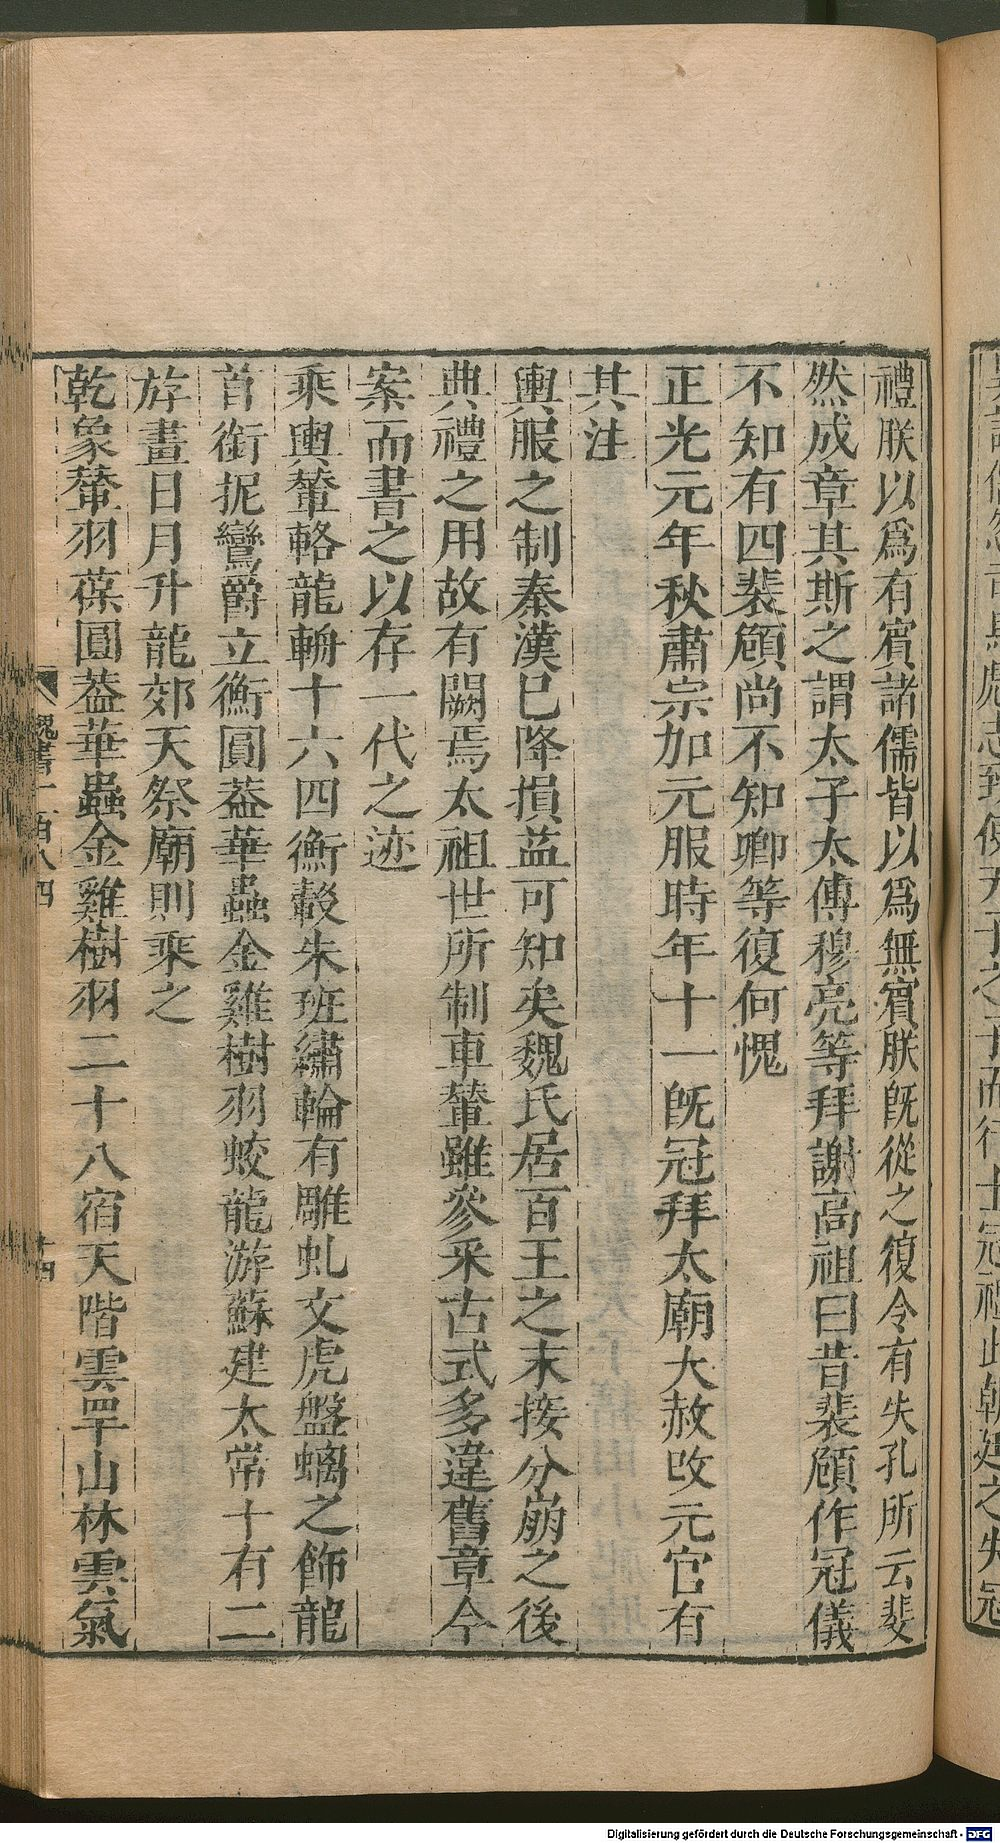 禮朕以爲有賓諸儒皆以爲無賓朕旣從之復令有失孔所云斐
然成章其斯之謂太子太傅穆亮等拜謝高祖曰昔裴頠作冠儀
不知有四裴頠尚不知卿等復何愧
正光元年秋肅宗加元服時年十一旣冠拜太廟大赦改元官有
其注
輿服之制秦漢已降損益可知矣魏氏居百王之末接分崩之後
典禮之用故有闕焉太祖世所制車輦雖參采古式多違舊章今
案而書之以存一代之迹
乘輿輦輅龍輈十六四衡轂朱班繡輪有雕虬文虎盤螭之飾龍
首銜扼鸞爵立衡圓葢華蟲金雞樹羽蛟龍游蘇建太常十有二
斿畫日月升龍郊天祭廟則乘之
乾象輦羽葆圓葢華蟲金雞樹羽二十八宿天階雲罕山林雲氣
魏書一百八四
十四
Digitalisierung gefördert durch die Deutsche Forschungsgemeinschaft - DFG